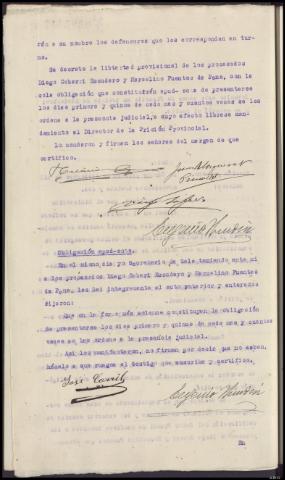 rán a su nombre los defensores que les correspondan en tur-
no.
Se decreta la libertad provisional de los procesados
Diego Cheberi Escudero y Marcelino Fuentes de Pena, con la
sola obligación que constituirán apud-acta de presentarse
los días primero y quince de cada mes y cuantas veces se les
ordene a la presencia judicial, a cuyo efecto líbrese man-
damiento al Director de la Prisión Provincial.
Lo acuerdan y firman los señores del margen de que
certifico.
Obligación apud-acta.
En el mismo día yo Secretario de Sala teniendo ante mí
a los procesados Diego Cheberi Escudero y Marcelino Fuentes
de Pena, les leí íntegramente el auto anterior y enterados
dijeron:
Que en la forma más solemne constituyen la obligación
de presentarse los días primero y quince de cada mes y cuantas
veces se les ordene a la presencia judicial.
Así lo manifestaron, no firman por decir que no saben,
hácelo a sus ruegos el testigo que suscribe y certifico.
José
Eugenio
En